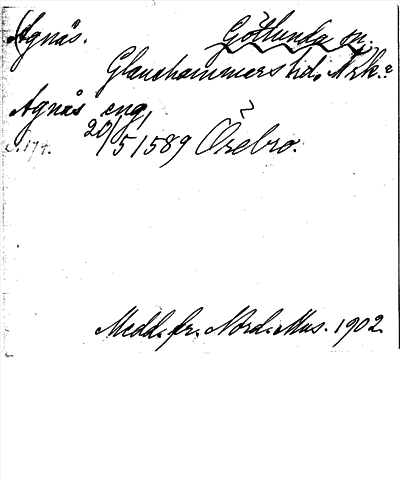 Agnäs. Götlunda sn.
Glanshammars hd, Nrke
Agnäs eng,
s. 174. 20/5 1589 Örebro.
Medd. fr. Nord. Mus. 1902.